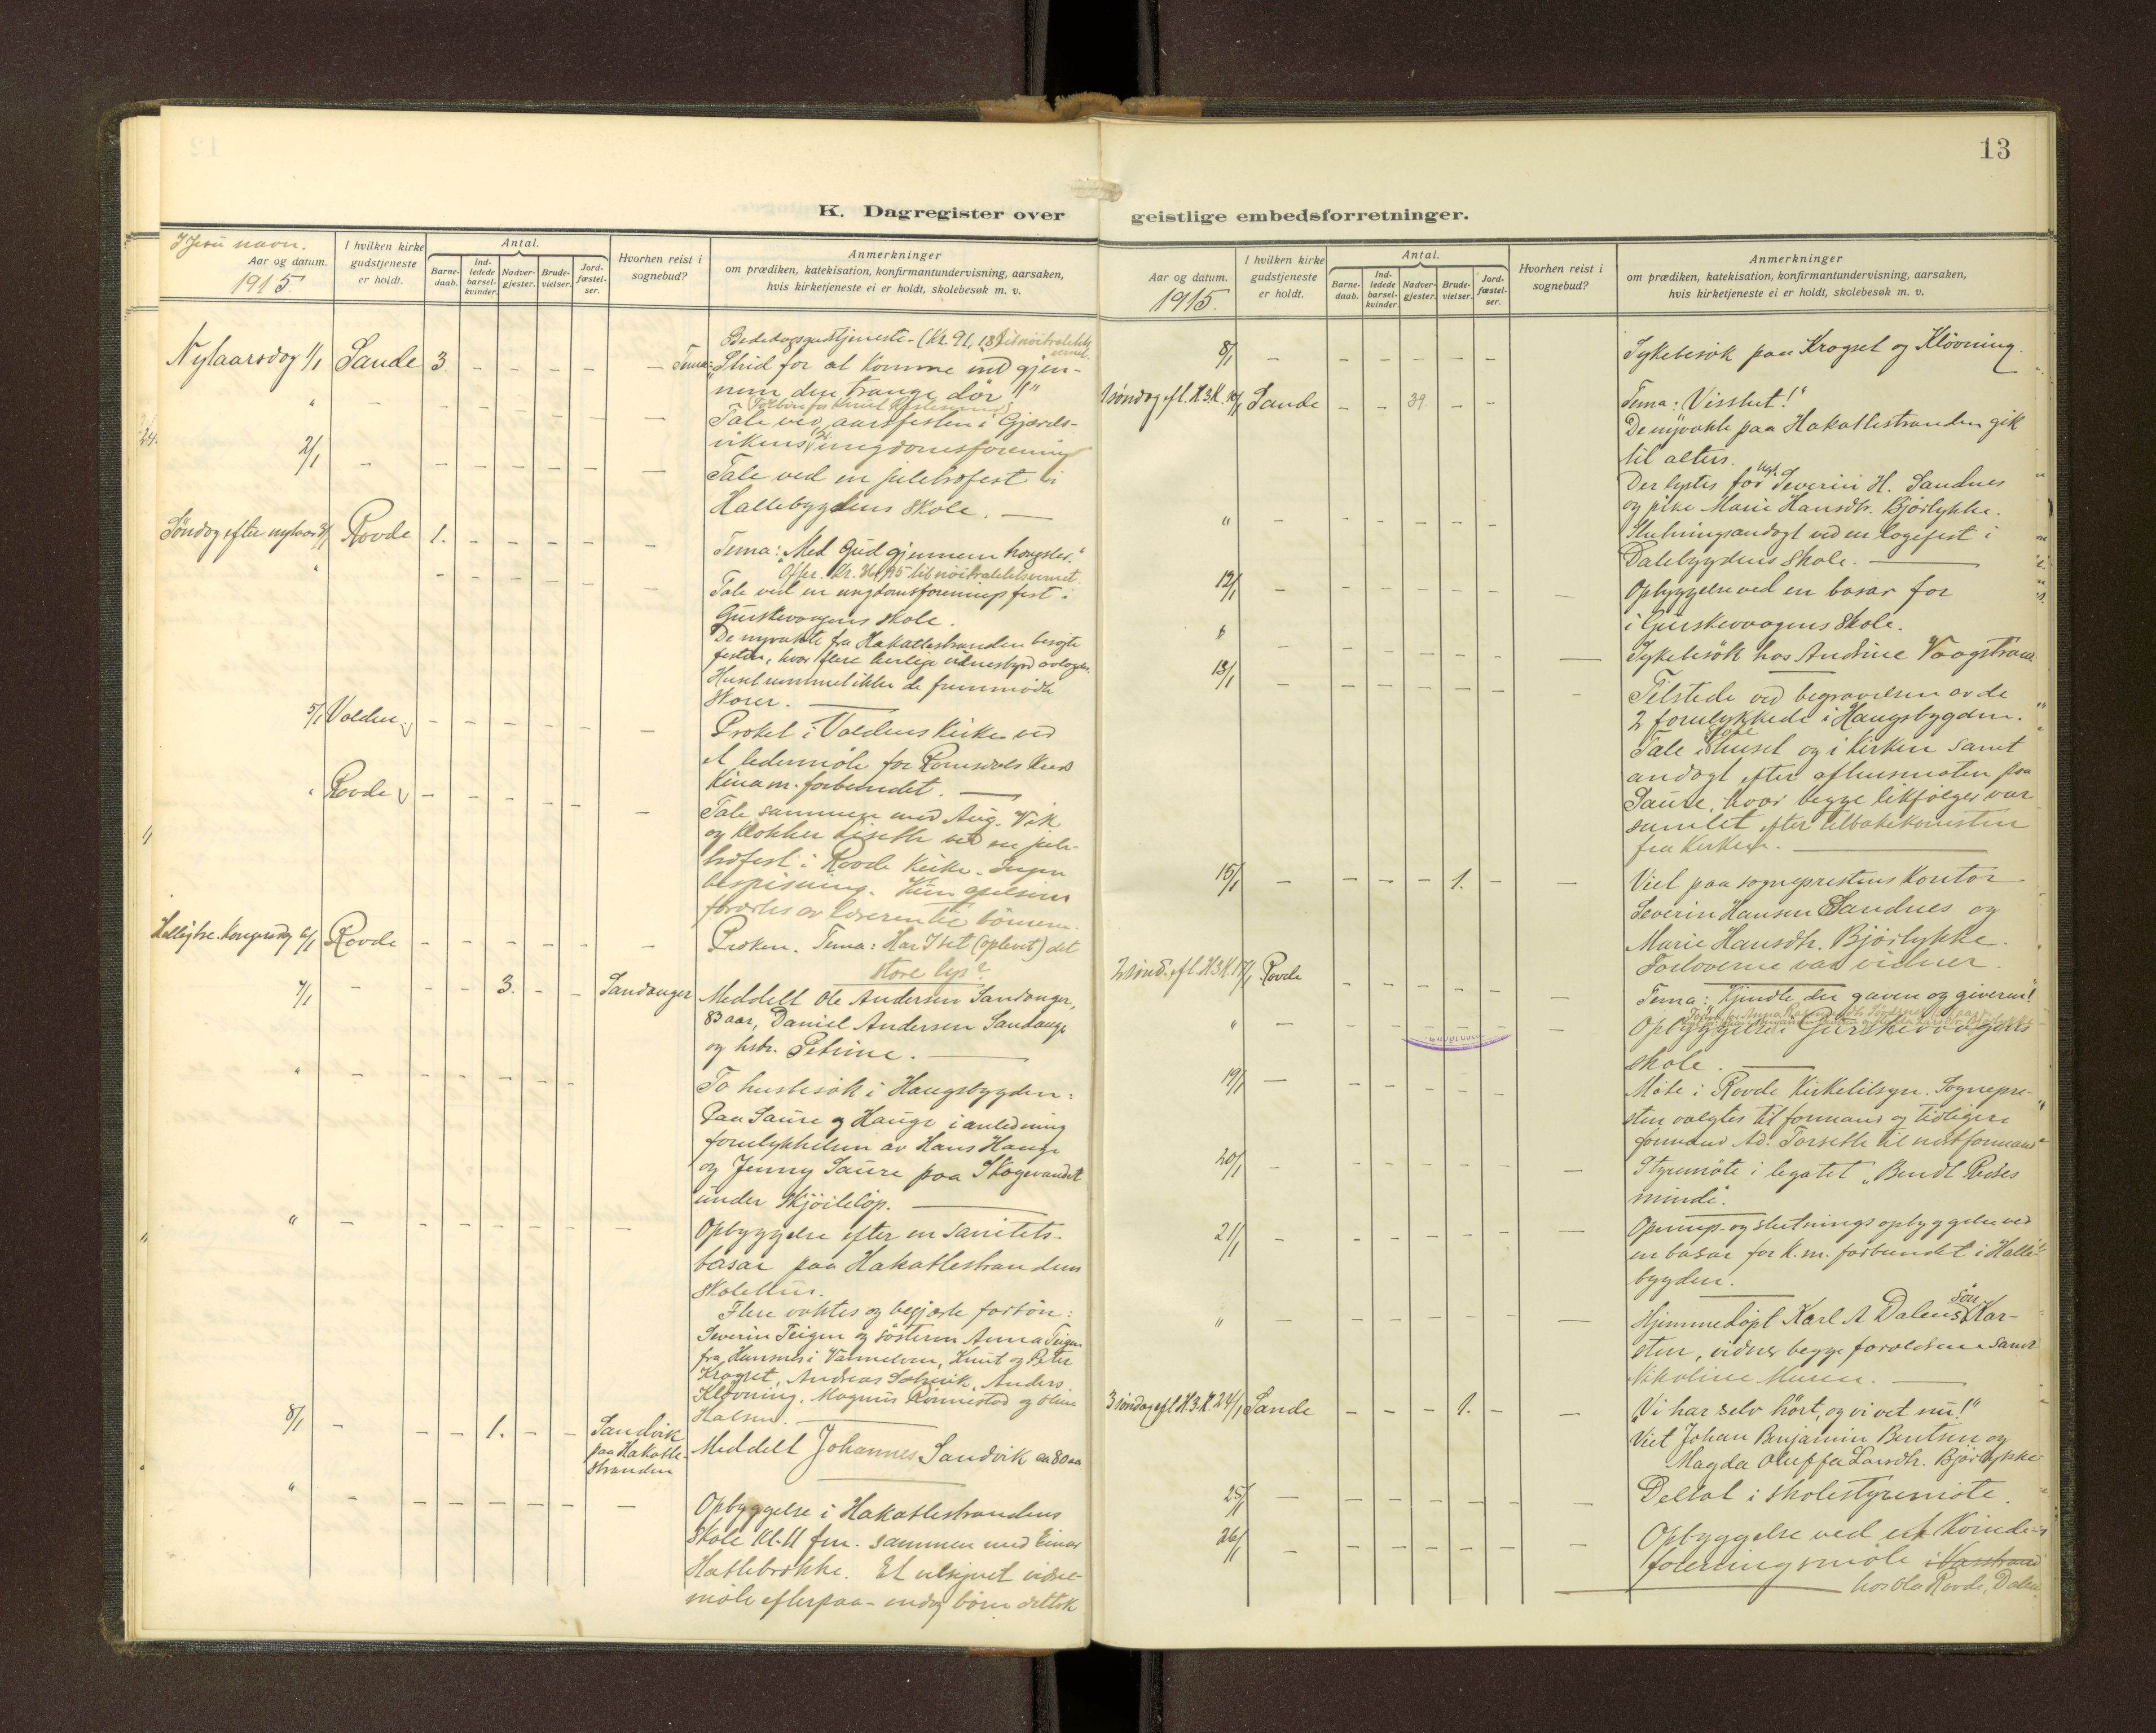 13
K. Dagregister over geistlige embedsforretninger.
I Jesu navn.
Aar og datum.
1915.
I hvilken kirke gudstjeneste er holdt.
Antal.
Barne-daab.
Ind-ledede barsel-kvinder.
Nadver-gjester.
Brude-vielser.
Jord-fæstel-ser.
Hvorhen reist i sognebud?
Anmerkninger
om prædiken, katekisation, konfirmantundervisning, aarsaken,
hvis kirketjeneste ei er holdt, skolebesøk m. v.
Bededagsgudstjeneste. (Kr. 91,18
Nytaarsdag 1/1 Sande 3. – – – – – Tema: "Strid for at komme ind gjen-
nem den trange dör!"
" – – – – – – – Tale ved aarsfesten i Gjærds-
vikens ungdomsforening
2/1 – – – – – – – Tale ved en juletræfest i
Hallebygdens skole. –
Søndag efter nytaar 3/1 Rovde 1. – – – – – Tema: "Med Gud gjennem trengsler."
Offer. Kr. til nöitralitetsvernet.
" – – – – – – Tale ved en ungdomsforeningsfest i
Gurskevaagens skole.
De nyvakte fra Hakallestranden besøgte
festen, hvor flere herlige vidnesbyrd avlagdes.
Huset rummet ikke de fremmödte
skarer. –
5/1 Volden – – – – – – Præket i Voldens Kirke ved
et ledermöte for Romsdals Kreds
Kinam. forbundet. –
" Rovde – – – – – – Tale sammen med Aug. Vik
og klokker Liseth ved en jule-
træfest i Rovde Kirke. Ingen
bespisning. Kun apelsiner
Hellig tre kongers dag 6/1 Rovde – – – – – – Præken. Tema: Har I set (oplevet) det
store lys?
7/1 – – – 3. – – Sandanger Meddelt Ole Andersen Sandanger,
83 aar, Daniel Andersen Sandanger
og hstr. Petrine. –
" – – – – – – To husbesök i Haugsbygden:
Paa Saure og Hauge i anledning
forulykkelsen av Hans Hauge
og Jenny Saure paa Skogevandet
under skjöiteløp. –
" – – – – – – – Opbyggelse efter en sanitets-
basar paa Hakallestrandens
Flere vaktes og begjærte forbön:
Severin Teigen og søsteren Anna Teigen
fra i Vannelven, Knut og Peter
Krogset, Andreas Anders
Klövning, Magnus Rönnestad og
8/1 – – – 1. – – Sandvik
paa Hakalle-
stranden
Meddelt Johannes Sandvik ca 80 aar
" – – – – – – – Opbyggelse i Hakallestrandens
skole kl. 11 fm. sammen med Einar
Hatlebrække. Et velsignet vidne-
möte efterpaa – endog börn deltok
Aar og datum.
1915.
I hvilken kirke gudstjeneste er holdt.
Antal.
Barne-daab.
Ind-ledede barsel-kvinder.
Nadver-gjester.
Brude-vielser.
Jord-fæstel-ser.
Hvorhen reist i sognebud?
Anmerkninger
om prædiken, katekisation, konfirmantundervisning, aarsaken,
hvis kirketjeneste ei er holdt, skolebesøk m. v.
8/1 – – – – – – – Sykebesök paa Krogset og Klövning.
1 søndag ef l. H3K. 10/1 Sande – – 39 – – Tema: "Visshet!"
De nyvakte paa Hakallestranden gik
til alters.
Der lystes for ugk. Severin H. Sandnes
og pike Marie Hansdtr. Bjørlykke.
" – – – – – – Slutningsandagt ved en logefest i
Dalebygdens skole. –
12/1 – – – – – – – Opbyggelse ved en basar for
i Gurskevaagens skole.
" – – – – – – – Sykebesök hos Andrine Vaagstrand
13/1 – – – – – – – Tilstede ved begravelsen av de
2 forulykkede i Haugsbygden.
Tale i skolehuset og i kirken samt
andagt efter afhusmaten paa
Saure, hvor begge likfølger var
samlet efter tilbakekomsten
fra kirken. –
15/1 – – – – 1. – – Viet paa sogneprestens kontor
Severin Hansen Sandnes og
Marie Hansdtr. Bjørlykke.
Forloverne var vidner
2 sønd. ef l. H3K. 17/1 Rovde – – – – – – Tema: "Kjendte du gaven og giveren!"
" – – – – – – Opbyggelse i Gurskevaagens
skole. –
19/1 – – – – – – Möte i Rovde kirketilsyn. Sognepre-
sten valgtes til formand og tidligere
formand Ad. Torseth til næstformand
20/1 – – – – – – – Styremöte i legatet "Bendt Riises
minde."
21/1 – – – – – – – Opnings- og slutningsopbyggelse ved
en basar for K. m. forbundet i Halle-
bygden.
" – – – – – – – Hjemmedöpt Karl A Dalens sön Kar-
sten, vidner begge forældrene samt
Nikoline Muren. –
3 søndag ef l. H3.K. 24/1 Sande – – – 1. – – "Vi har selv hört, og vi vet nu!"
Viet Johan Benjamin Bentsen og
Magda Oluffa Larsdtr. Bjørlykke
25/1 – – – – – – – Deltat i skolestyremöte.
26/1 – – – – – – – Opbyggelse ved et Kvinde-
foreningsmöte
hos Ola Rovde, Dalen